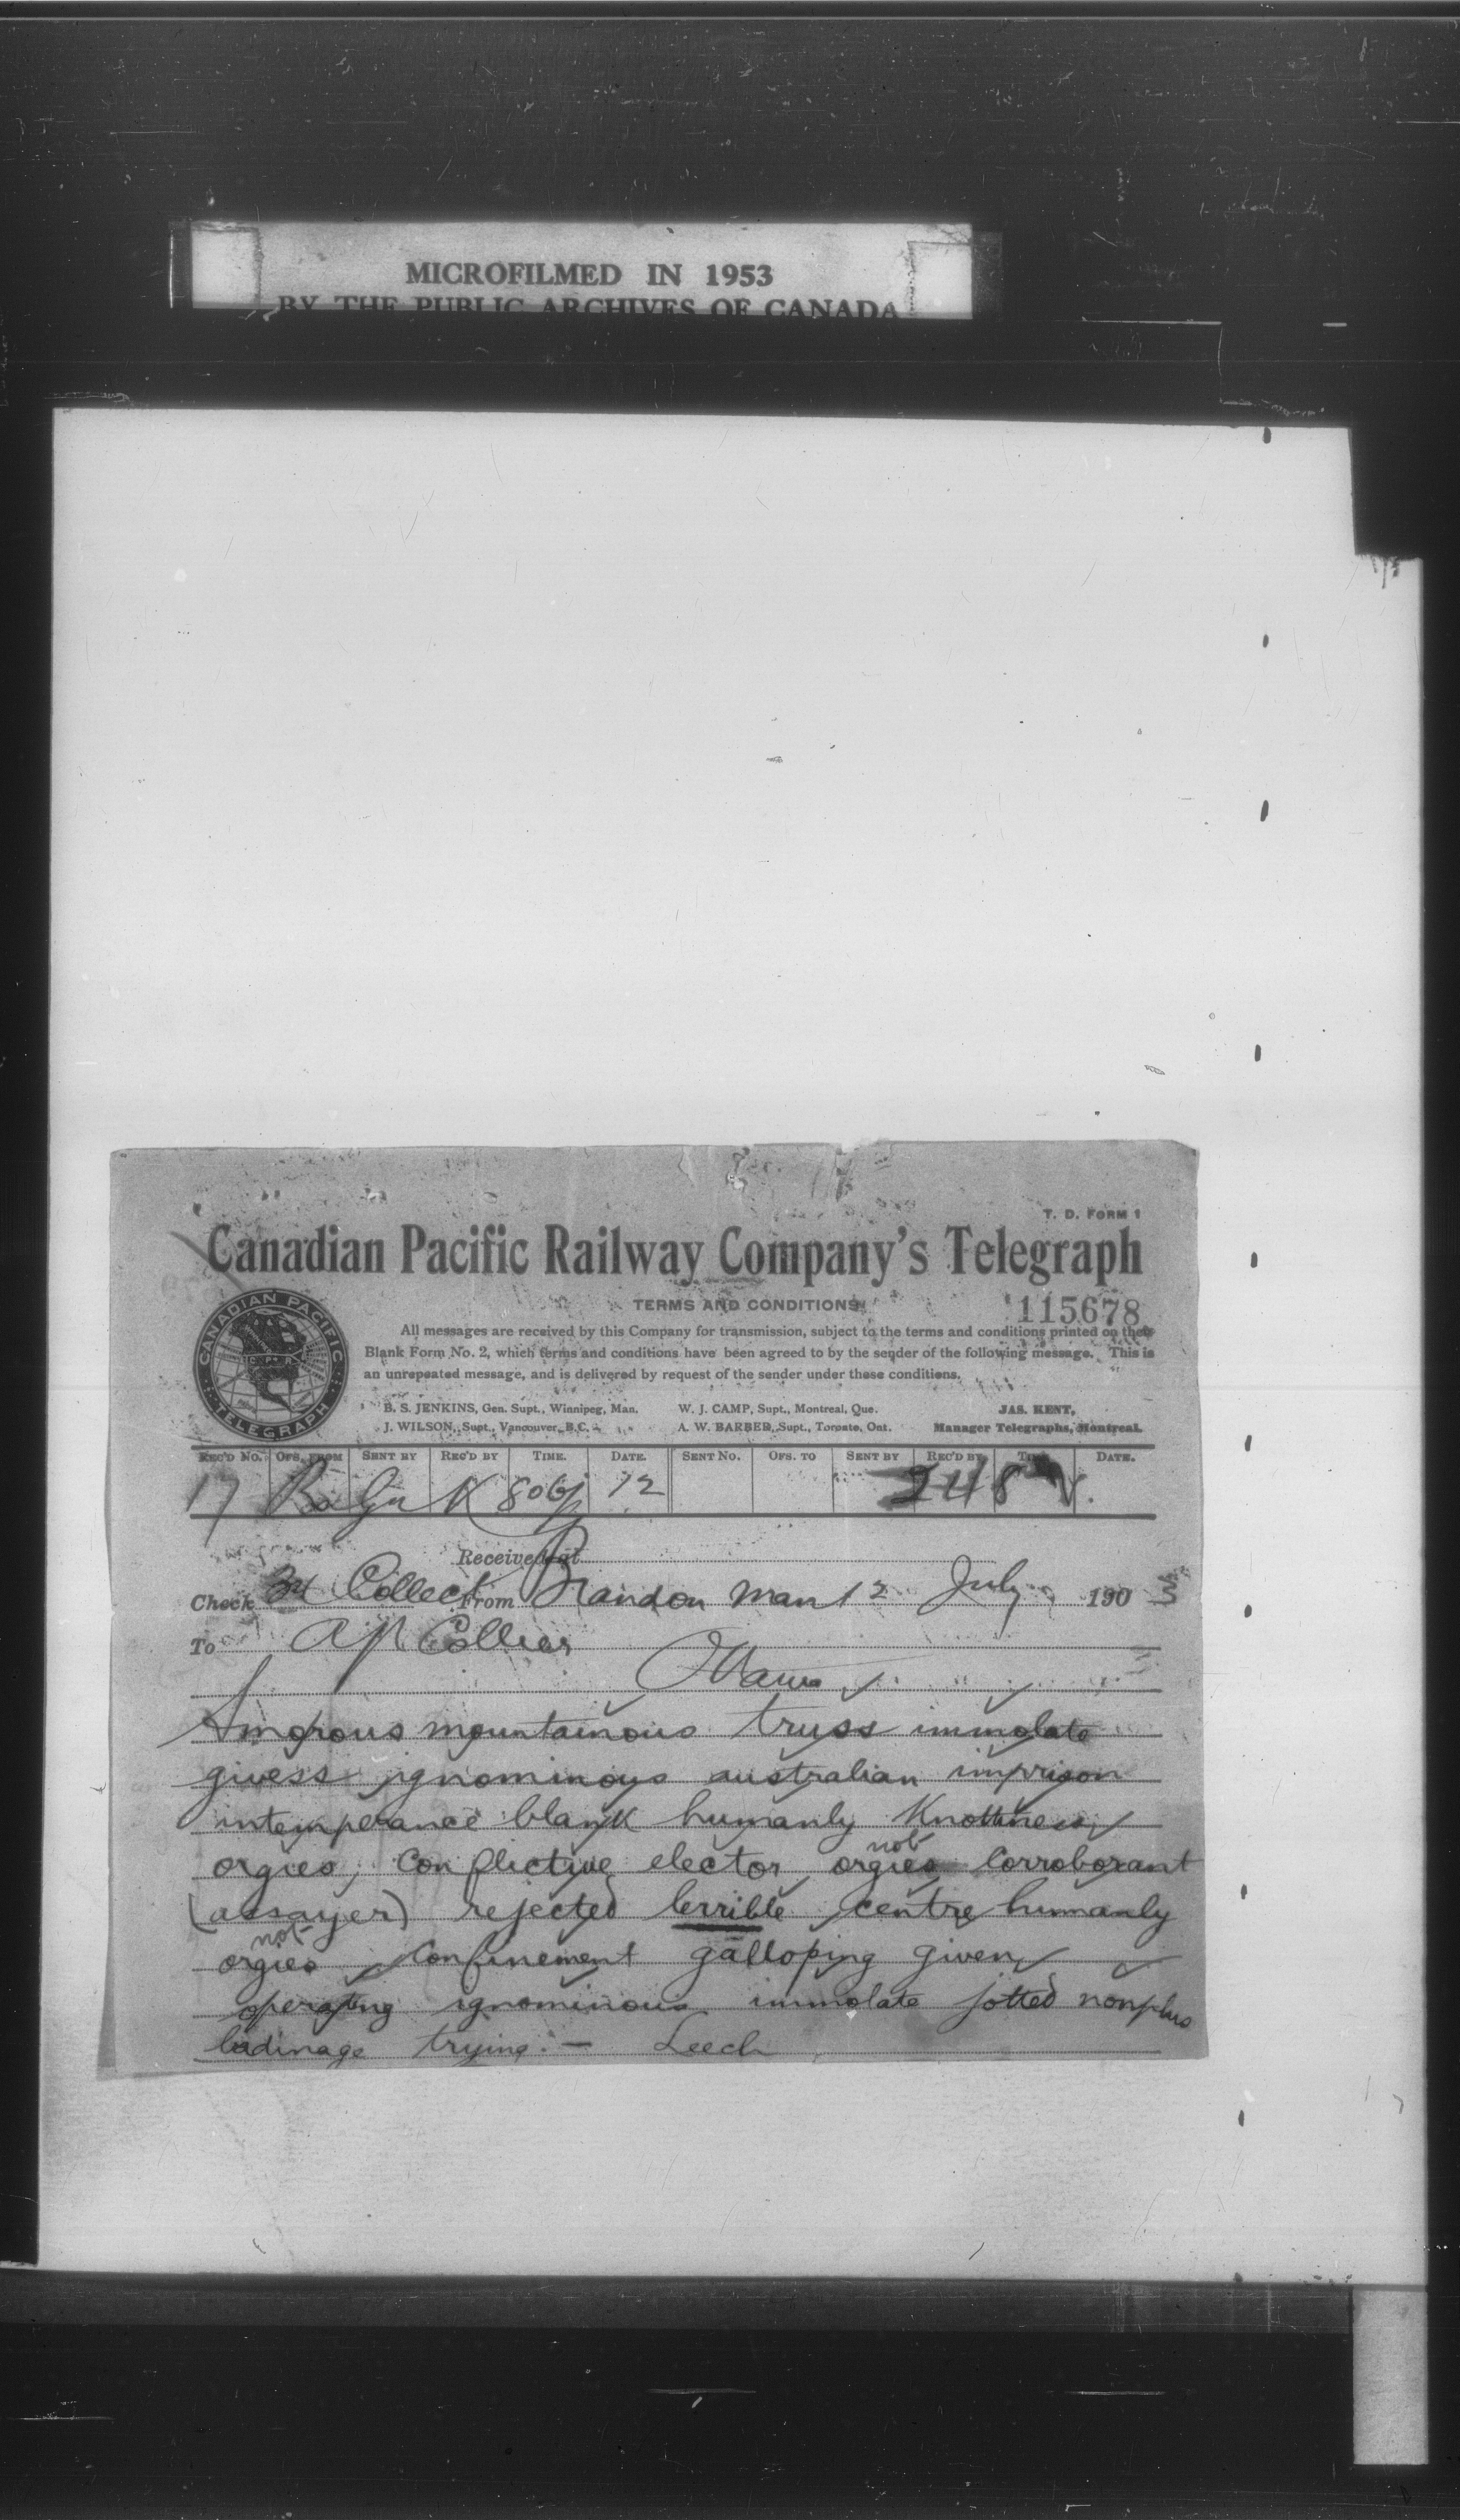 MICROFILMED IN 1953
BY THE PUBLIC ARCHIVES OF CANADA
T. D. FORM 1
Canadian Pacific Railway Company's Telegraph
TERMS AND CONDITIONS
115678
All messages are received by this Company for transmission, subject to the terms and conditions printed on their
Blank Form No. 2, which terms and conditions have been agreed to by the sender of the following message. This is
an unrepeated message, and is delivered by request of the sender under these conditions.
CANADIAN PACIFIC
C.P.R.
TELEGRAPH
B. S. JENKINS, Gen. Supt., Winnipeg, Man. W. J. CAMP, Supt., Montreal, Que. JAS. KENT,
J. WILSON, Supt., Vancouver, B.C. A. W. BARBER, Supt., Toronto, Ont. Manager Telegraphs, Montreal.
REC'D NO. OFS. FROM SENT BY REC'D BY TIME. DATE. SENT NO. OFS. TO SENT BY REC'D BY TIME DATE.
17 K 12 248
Received at
Check 34 Collect From Brandon Man 12 July 1903
To A P Collier
Ottawa
Amorous mountainous truss immolate
guess ignominous australian imprison
intemperance blank humanly Knottiness
orgies, Conflictive elector orgies Corroborant
not
(assayer) rejected terrible centre humanly
not
orgies Confinement galloping given
operating ignominous immolate jotted nonplus
badinage trying. — Leech